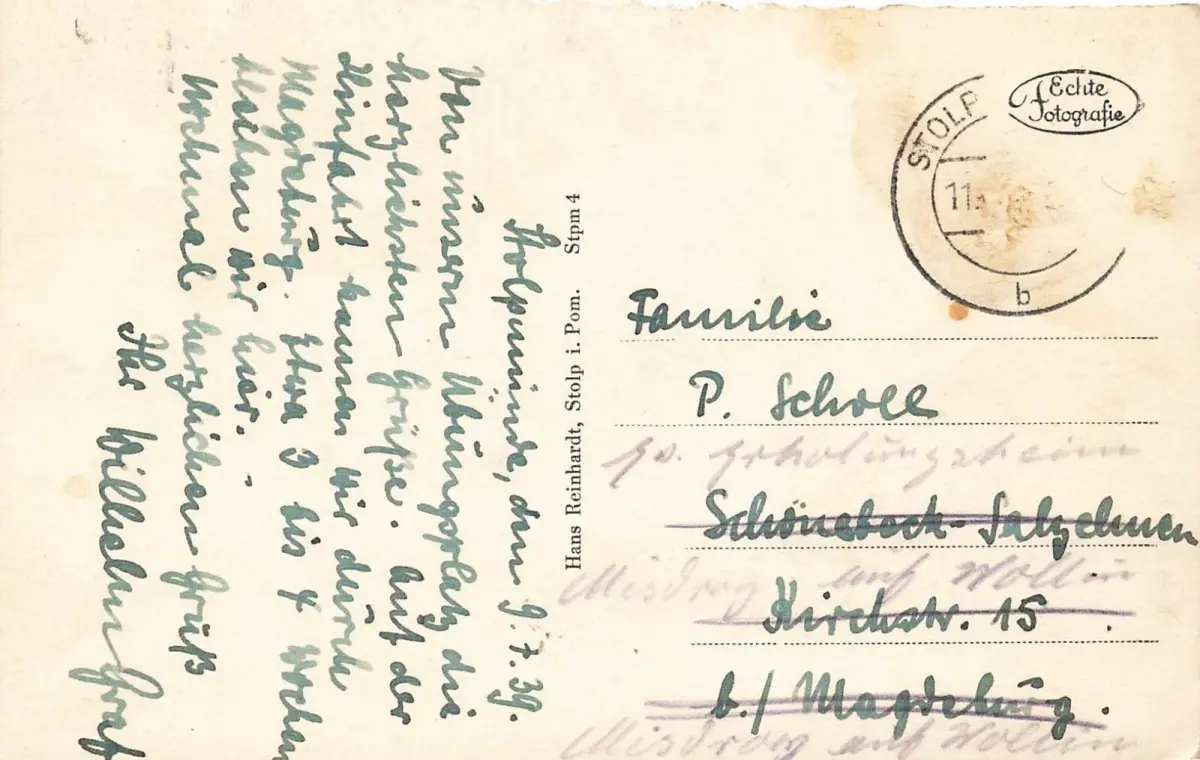 Stolpmünde, den 9.7.39.
Von unserm Übungsplatz die
herzlichsten Grüße. Auf der
Hinfahrt kamen wir durch
Magdeburg. Etwa 3 bis 4 Wochen
bleiben wir hier.
Nochmal herzlichen Gruß
Ihr Wilhelm Graf
Hans Reinhardt, Stolp i. Pom. Stpm 4
Echte
Fotografie
STOLP
11.
b
Familie
P. Scholl
Erholungsheim
Schönebeck-Salzelmen
Misdroy auf Wollin
Kirchstr. 15
b./ Magdeburg.
Misdroy auf Wollin